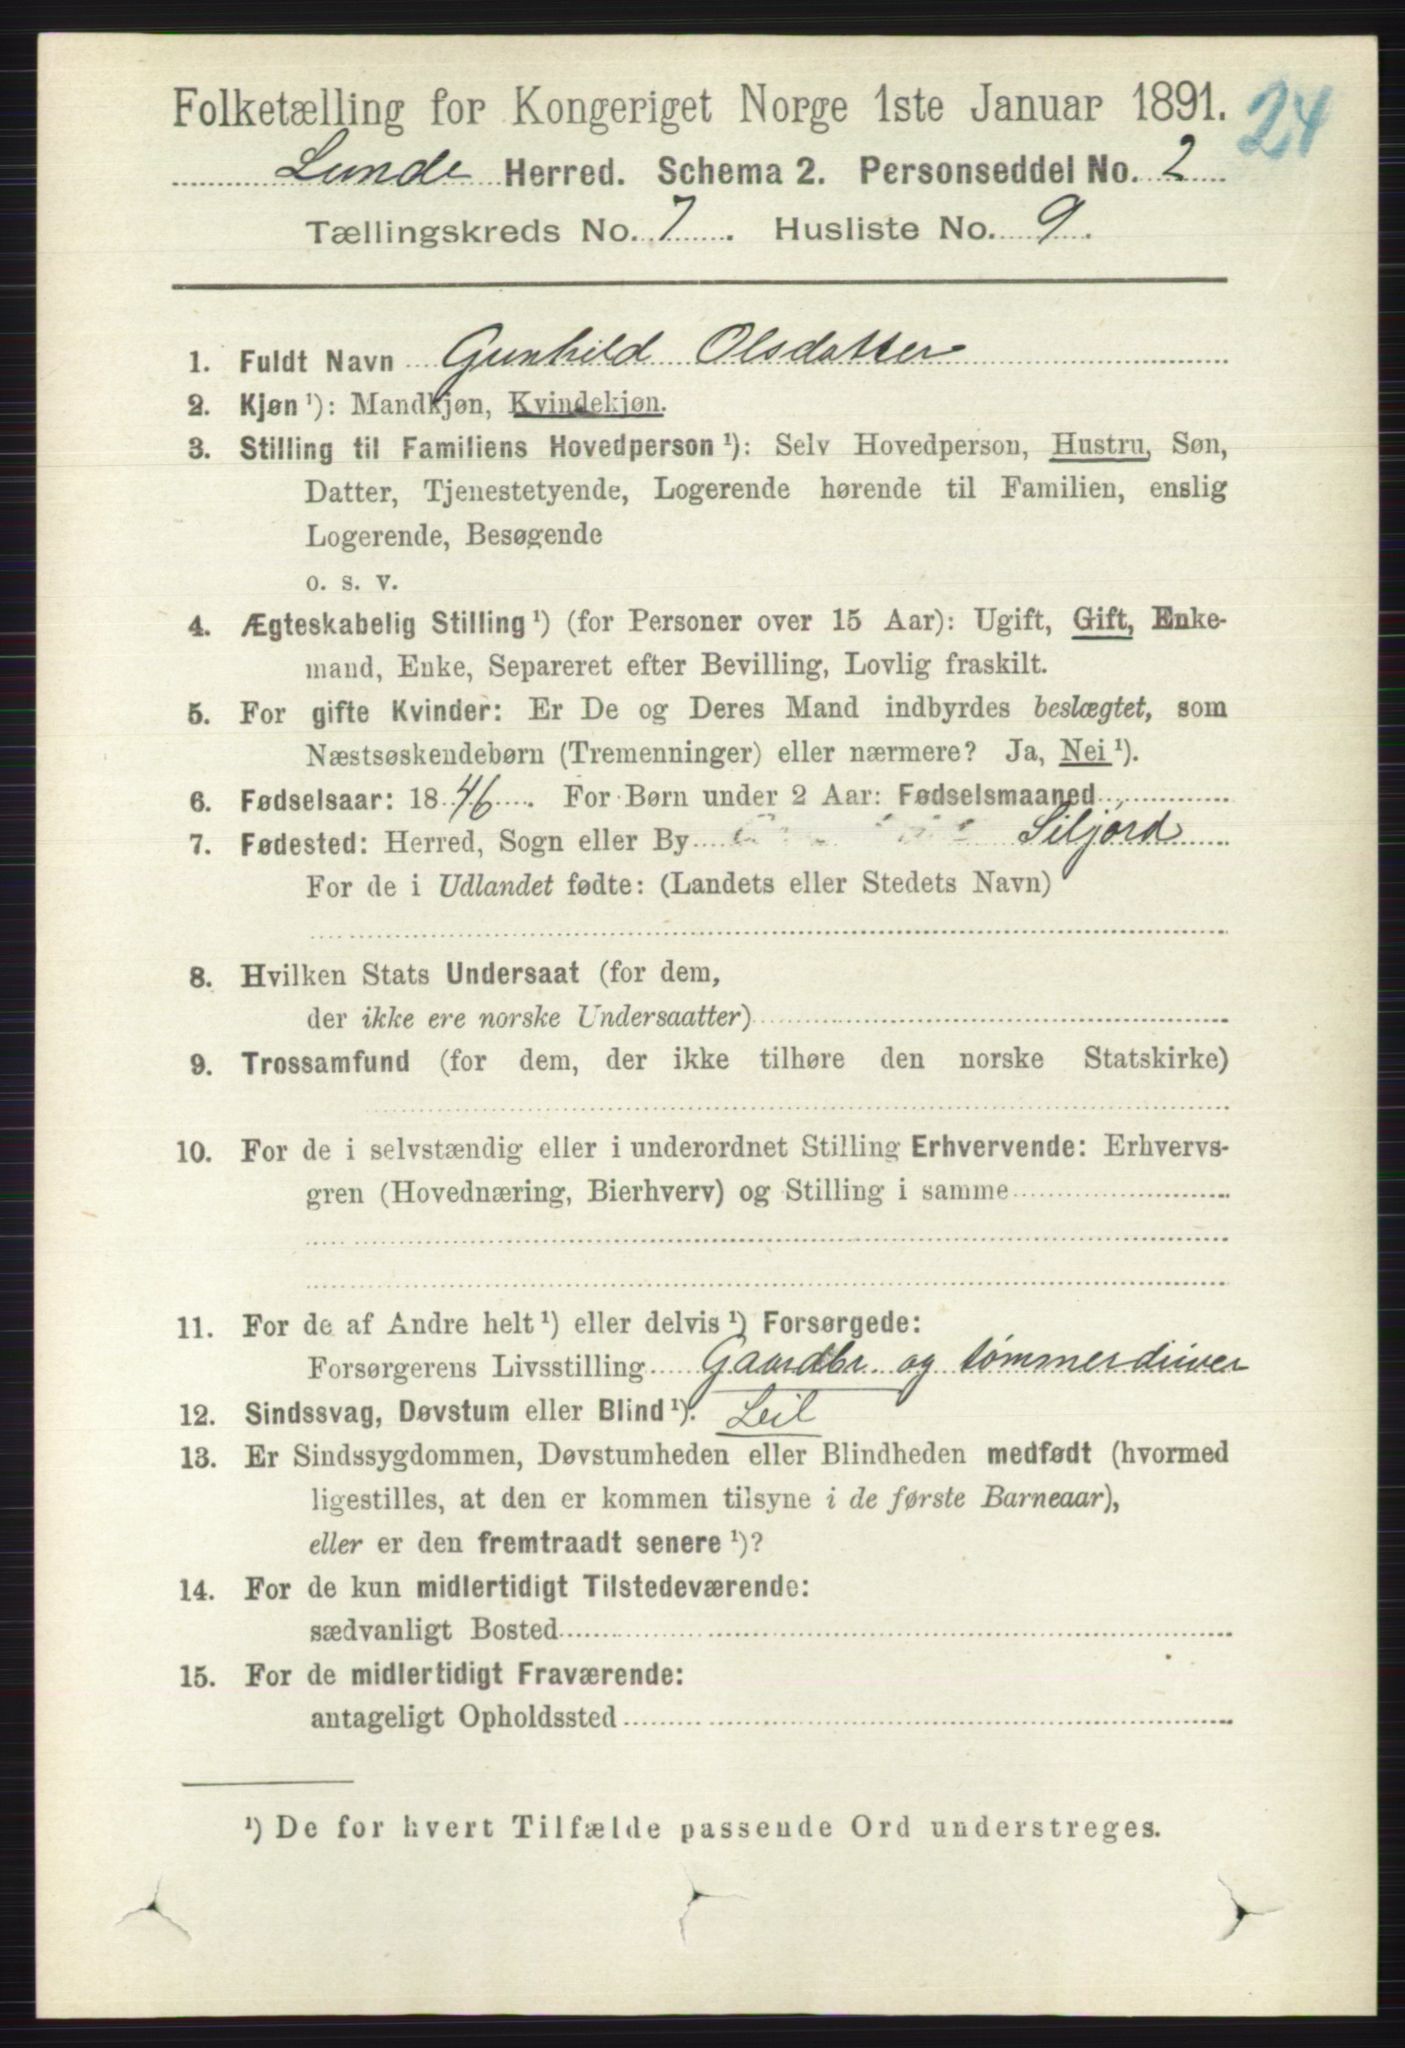 Folketælling for Kongeriget Norge 1ste Januar 1891. 24
Lunde Herred. Schema 2. Personseddel No. 2
Tællingskreds No. 7. Husliste No. 9.
1. Fuldt Navn Gunhild Olsdatter
2. Kjøn ¹): Mandkjøn, Kvindekjøn.
3. Stilling til Familiens Hovedperson ¹): Selv Hovedperson, Hustru, Søn,
Datter, Tjenestetyende, Logerende hørende til Familien, enslig
Logerende, Besøgende
o. s. v.
4. Ægteskabelig Stilling ¹) (for Personer over 15 Aar): Ugift, Gift, Enke-
mand, Enke, Separeret efter Bevilling, Lovlig fraskilt.
5. For gifte Kvinder: Er De og Deres Mand indbyrdes beslægtet, som
Næstsøskendebørn (Tremenninger) eller nærmere? Ja, Nei ¹).
6. Fødselsaar: 1846. For Børn under 2 Aar: Fødselsmaaned
7. Fødested: Herred, Sogn eller By Siljord
For de i Udlandet fødte: (Landets eller Stedets Navn)
8. Hvilken Stats Undersaat (for dem,
der ikke ere norske Undersaatter)
9. Trossamfund (for dem, der ikke tilhøre den norske Statskirke)
10. For de i selvstændig eller i underordnet Stilling Erhvervende: Erhvervs-
gren (Hovednæring, Bierhverv) og Stilling i samme
11. For de af Andre helt ¹) eller delvis ¹) Forsørgede:
Forsørgerens Livsstilling Gaardbr. og tømmerdriver
12. Sindssvag, Døvstum eller Blind ¹).
13. Er Sindssygdommen, Døvstumheden eller Blindheden medfødt (hvormed
ligestilles, at den er kommen tilsyne i de første Barneaar),
eller er den fremtraadt senere ¹)?
14. For de kun midlertidigt Tilstedeværende:
sædvanligt Bosted
15. For de midlertidigt Fraværende:
antageligt Opholdssted
¹) De for hvert Tilfælde passende Ord understreges.